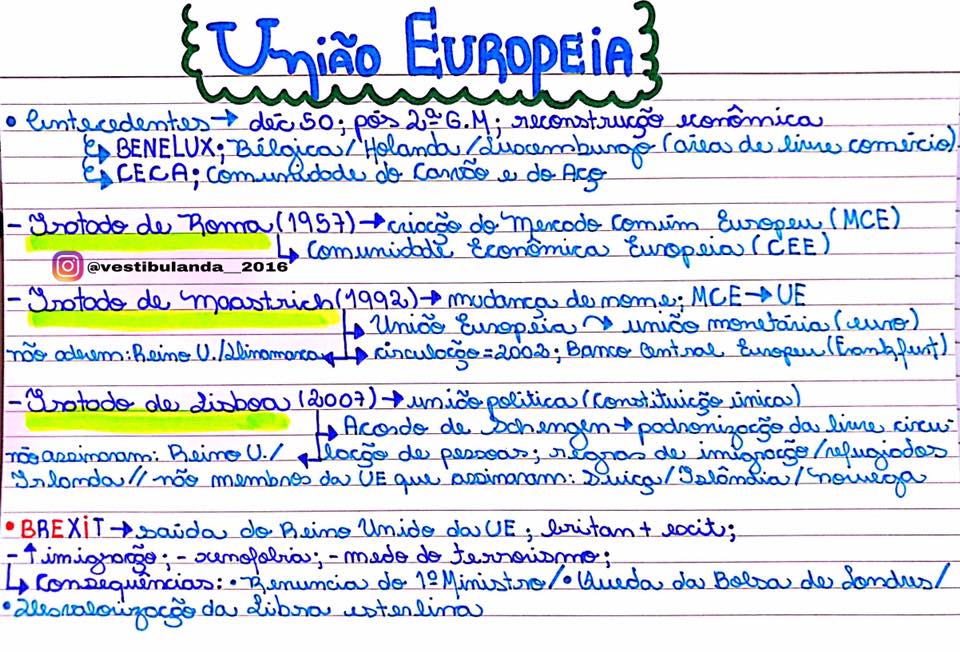 União Europeia
• Antecedentes → déc 50; pós 2ª G.M; reconstrução econômica
↳ BENELUX; Bélgica/Holanda/Luxemburgo (área de livre comércio).
↳ CECA; Comunidade do Carvão e do Aço
- Tratado de Roma (1957) → criação do Mercado Comum Europeu (MCE)
↳ Comunidade Econômica Europeia (CEE)
@vestibulanda_2016
- Tratado de Maastrich (1992) → mudança de nome; MCE → UE
União Europeia ↷ união monetária (euro)
não aderem: Reino U./Dinamarca circulação = 2002; Banco Central Europeu (Frankfurt)
- Tratado de Lisboa (2007) → união política (Constituição única)
Acordo de Schengen → padronização da livre circu-
não assinaram: Reino U./ lação de pessoas; regras de imigração/refugiados
Irlanda // não membros da UE que assinaram: Suiça/Islândia/Noruega
• BREXIT → saída do Reino Unido da UE; britan + exit;
- ↑ imigração; - xenofobia; - medo do terrorismo;
↳ Consequências: • Renuncia do 1º Ministro/ • Queda da Bolsa de Londres/
• Desvalorização da Libra esterlina